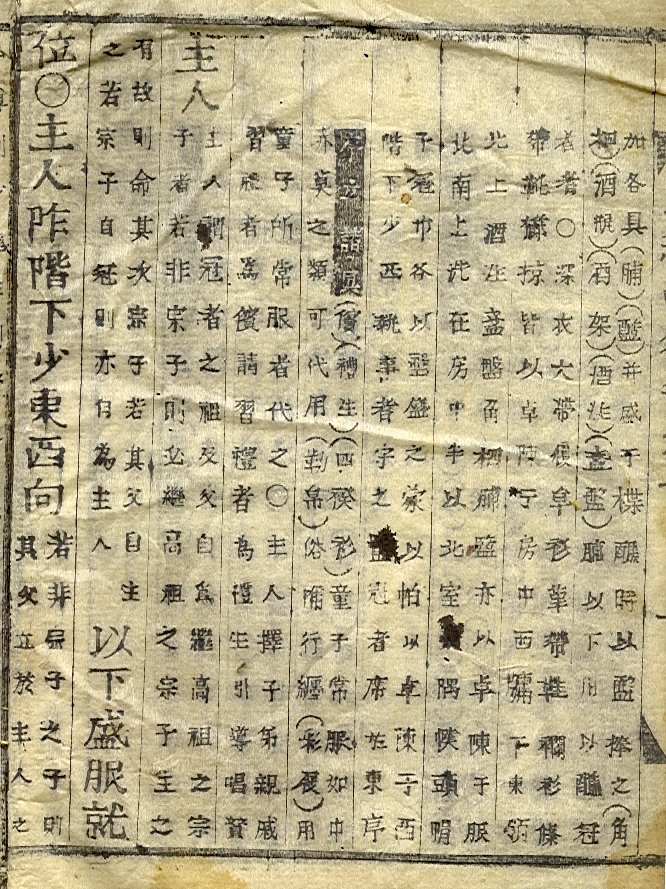 加各具(脯)(醢)并盛于楪醮時以盤捧之(角
柶)(酒瓶)(酒架)(酒注)(盞盤)醮以下用以醮冠
者者○深衣大帶後阜衫革帶鞋襴衫絛
帶靴襪掠皆以卓陳于房中西牖下東領
北上酒注盞盤角柶脯醢亦以卓陳于服
北南上洗在房中半以北室隅幞頭帽
子冠巾各以盤盛之蒙以帕以卓陳于西
階下少西執事者守之冠者席在東序
(儐)(禮生)(四䙆衫)童子常服如中
赤莫之類可代用(勒帛)俗所行纏(彩屐)用
童子所常服者代之○主人擇子弟親戚
習禮者為儐請習禮者為禮生引導唱贊
主人
主人謂冠者之祖父父自為繼高祖之宗
子者若非宗子則必繼高祖之宗子主之
有故則命其次宗子若其父自主
之若宗子自冠則亦自為主人
以下盛服就
位○主人阼階下少東西向
若非宗子之子則
其父立於主人之